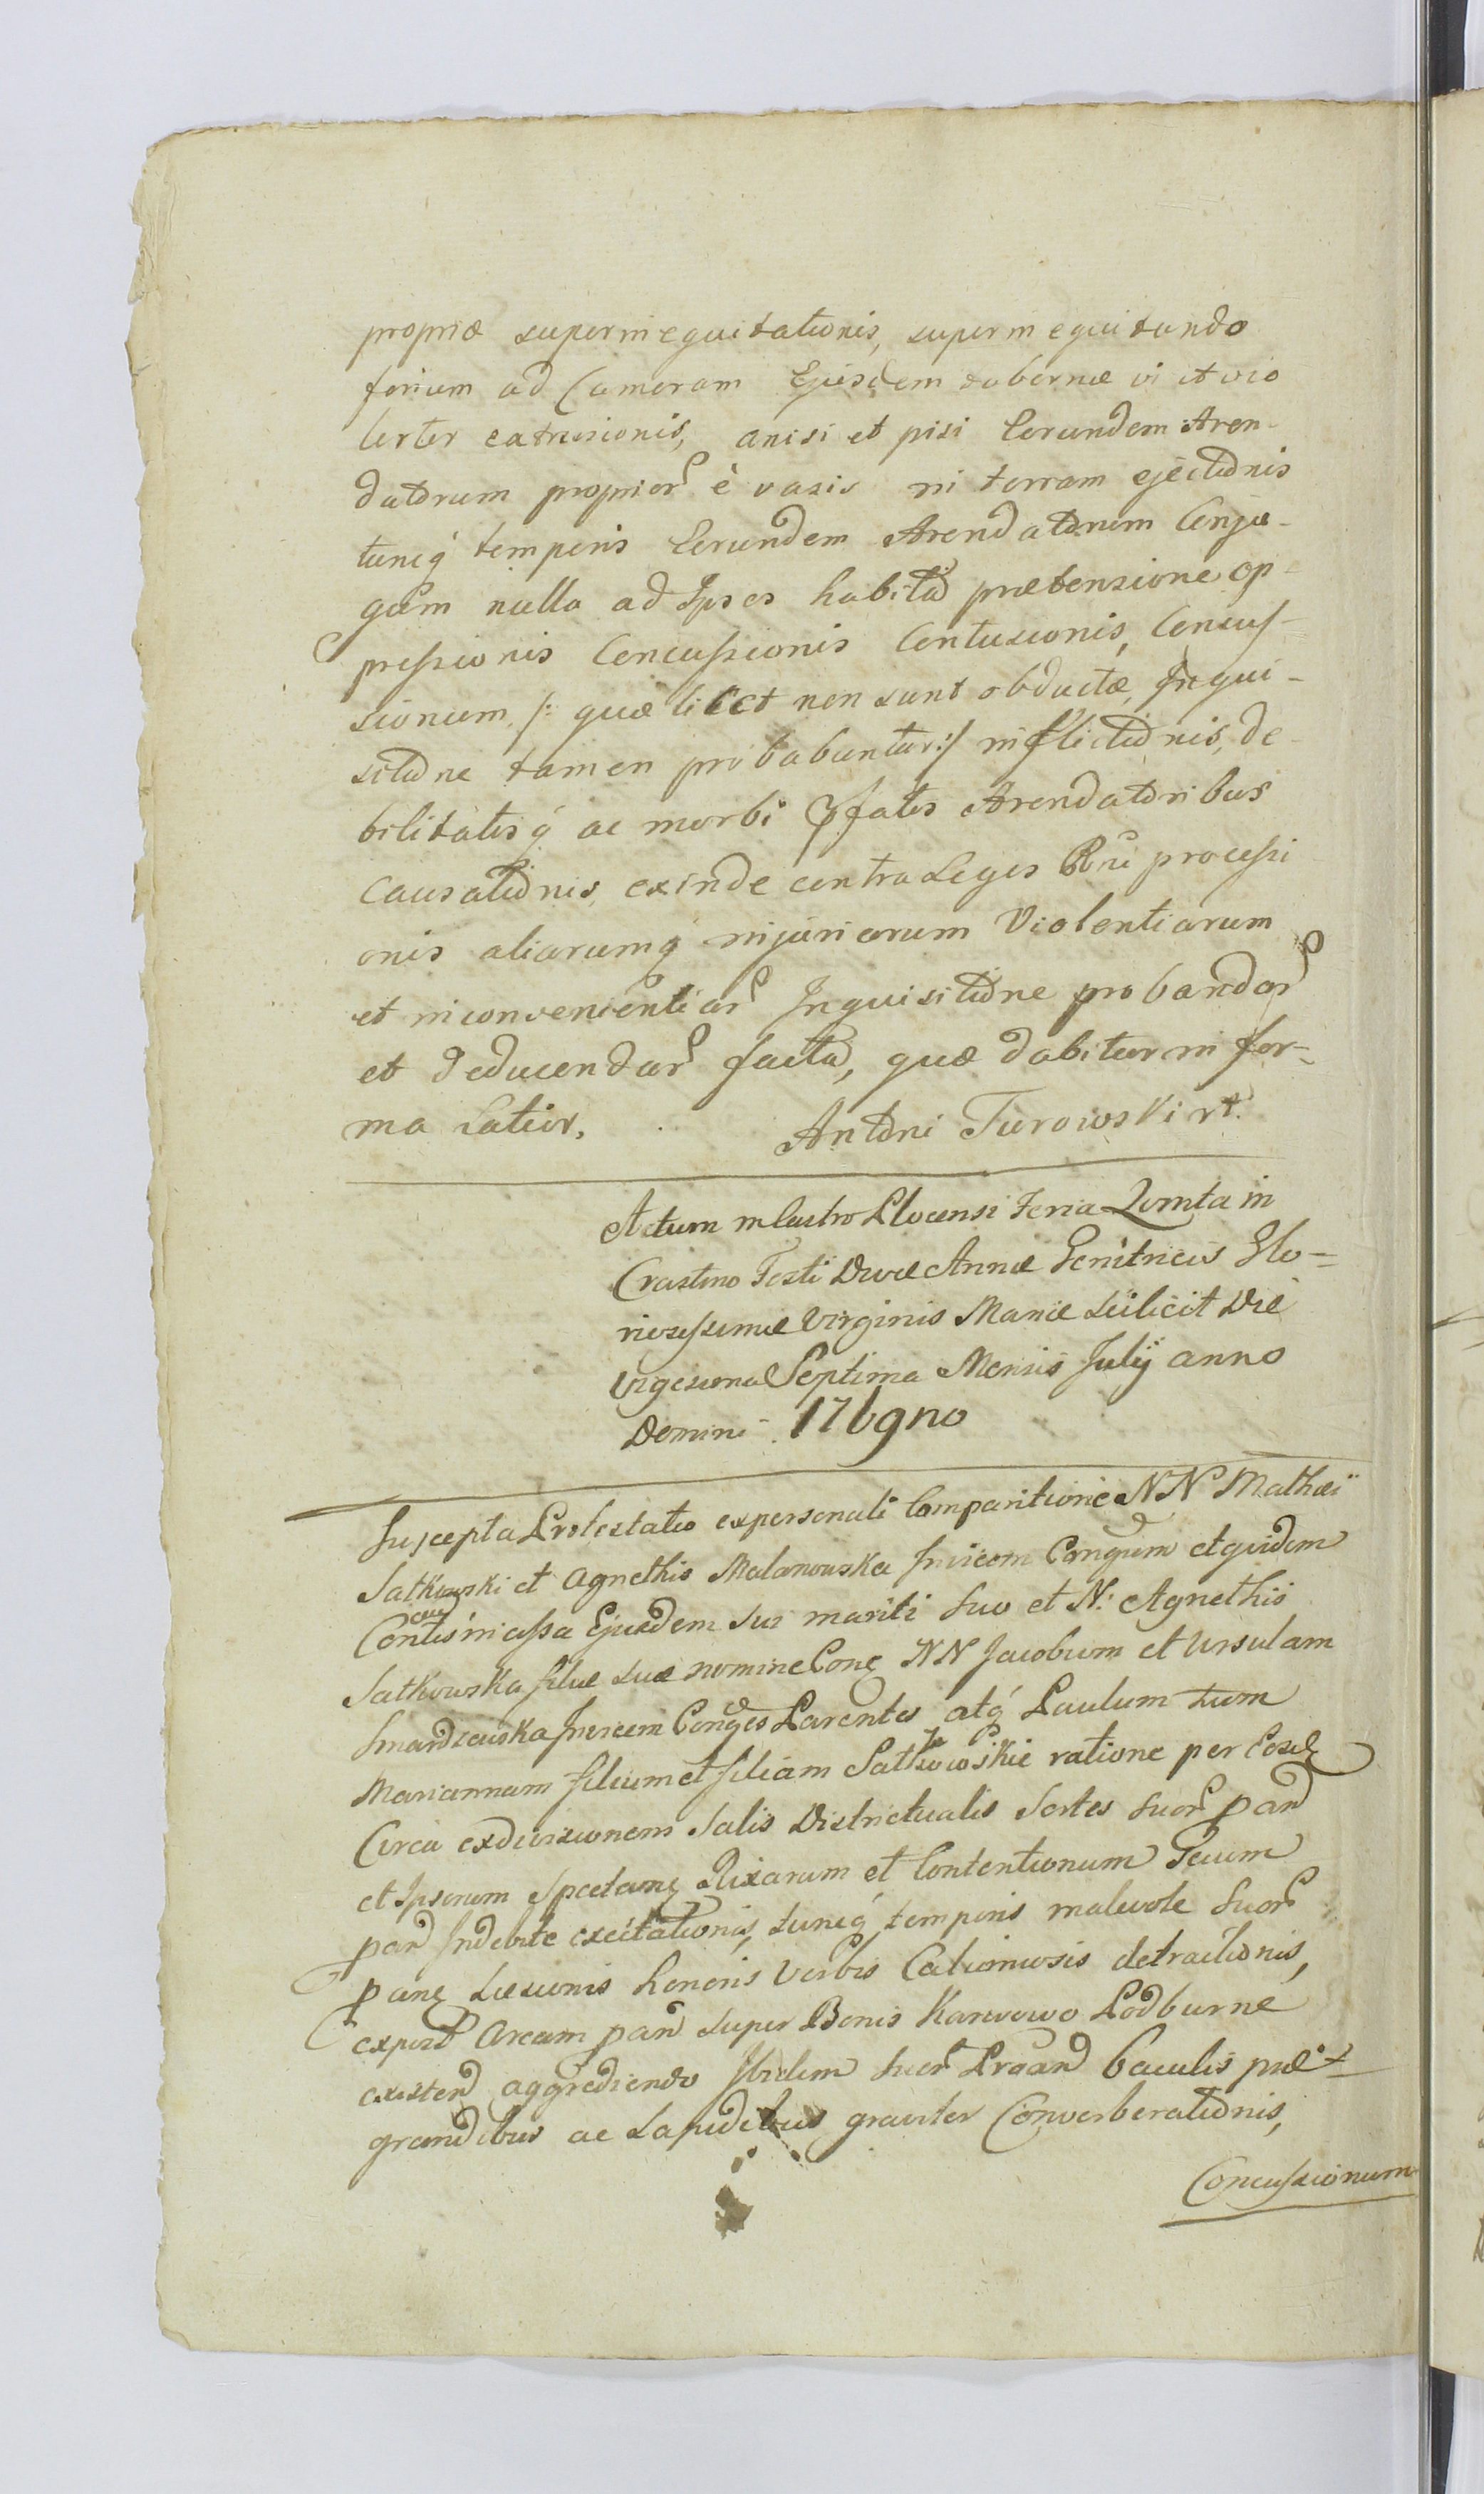 propriæ superinequitationis, superinequitando
forium ad Cameram Ejusdem tabernæ vi et vio
lerter extrusionis, anisi et pisi Eorundem Aren-
datorum proprior è vasis in terram ejectionis
tuncq́ temporis Eorundem Arendatorum Conju-
gum nulla ad Ipsos habita prætensione op-
pressionis Concussionis Contusionis, Concus-
sionum /: quæ licet non sunt obductæ, Inqui-
sitione tamen probabuntur :/ inflictionis, de-
bilitatisq́ ac morbi fatis Arendatoribus
causationis, exinde contra Leges Rni processi
onis aliarumq́ injuriarum Violentiarum
et inconvenientiar Inquisitione probandar
et deducendar facta, quæ dabitur in for-
ma latior.
Antoni Turowski rt.
Actum in Castro Plocensi Feria Quinta in
Crastino Festi Divæ Annæ Genitricis Glo=
riosissimæ Virginis Mariæ scilicet Die
Vigesima Septima Mensis Julÿ anno
Domini 1769no
Suscepta Protestatio ex personali Comparitione NN Mathæi
Satkowski et Agnethis Malanowska Invicem Congum et quidem
in assa Ejusdem sui mariti suo et N: Agnethis
Satkowska filiæ suæ nomine Cong NN Jacobum et Ursulam
Smardzewska Invicem Conges Parentes atq́ Paulum tum
Mariannam filium et filiam Satkowskie ratione per Eosdem
Circa exdivisionem Salis Districtualis Sortes suor pand
et Ipsorum Spectang Rixarum et Contentionum Secum
pand Indebite excitationis, tuncq́ temporis malevole suor
pang Læsionis honoris Verbis Calumniosis detractionis,
expost Aream pand super Bonis Karwowo Podburne
existend aggrediendo Ibidem suor Prgand baculis præ-
grandibus ac Lapidibus graviter Converberationis,
Concussionum